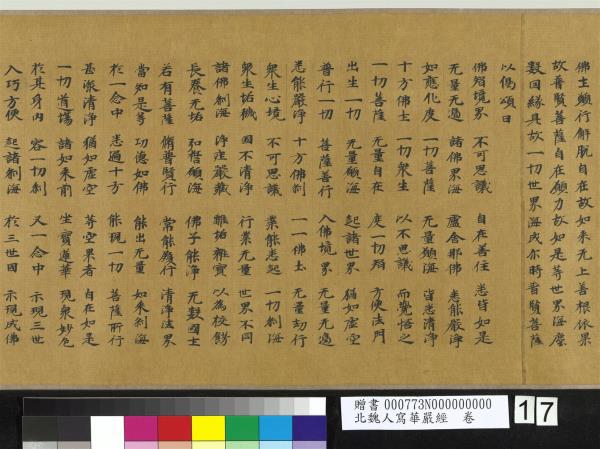 佛土願行解脫自在故如來无上善根依果
故普賢菩薩自在願力故如是等世界海塵
數因緣具故一切世界海成尒時普賢菩薩
以偈頌曰
境界 不可思議 自在善住 悉皆如是
无量无邊 諸佛界海 盧舍那佛 悉能嚴淨
如應化度 一切菩薩 无量願海 皆悉清淨
十方佛土 一切衆生 以不思議 而覺悟之
一切菩薩 无量自在 度一切 方便法門
出生一切 无量願海 起諸世界 猶如虛空
普行一切 菩薩善行 入佛境界 无量无邊
悉能嚴淨 十方佛剎 一一佛土 无量劫行
衆生心境 不可思議 業能悉起 一切剎海
衆生垢穢 國不清淨 行業无量 世界不同
諸佛剎海 淨莊嚴藏 離垢雜寶 以爲挍飾
長養无垢 願海 佛子能淨 无數國土
若有菩薩 脩普賢行 常能行 清淨法界
當知是等 功德如佛 能出无量 如來剎海
於一念中 悉過十方 能現一切 菩薩所行
甚深清淨 猶如虛空 等空界者 自在如是
一切道場 諸如來前 坐寶蓮華 現衆妙色
於其身內 容一切剎 又一念中 示現三世
入巧方便 起諸剎海 於三世國 示現成佛
贈書 000773N000000000
北魏人寫華嚴經 卷
17